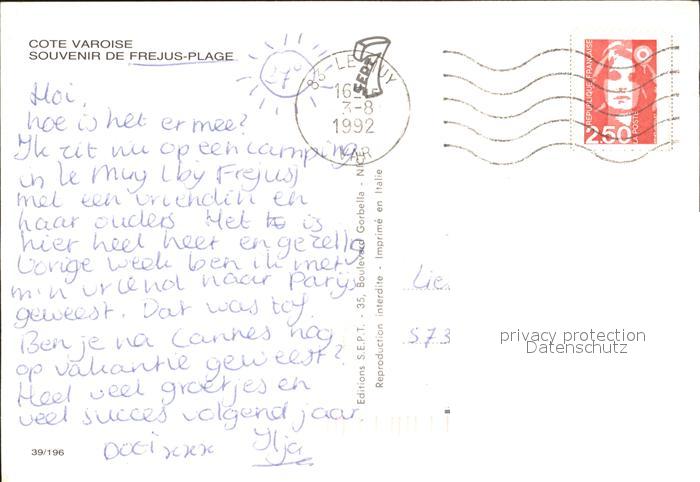 COTE VAROISE
SOUVENIR DE FREJUS-PLAGE
27°
83-LE MUY
16-
3-8
1992
VAR
SEPT
REPUBLIQUE FRANÇAISE
2,50
LA POSTE
Hoi,
hoe is het ermee?
Ik zit nu op een camping
in le Muy (bij Frejus)
met een vriendin en
haar ouders Het is
hier heel heet en gezellig
Vorige week ben ik met
m'n vriend naar Parijs
geweest. Dat was tof.
Ben je na Cannes nog
op vakantie geweest?
Heel veel groetjes en
veel succes volgend jaar.
Doei xxx Ilja
39/196
Editions S.E.P.T. - 35, Boulevard Gorbella - NICE
Reproduction interdite - Imprimé en Italie
Lie
573
privacy protection
Datenschutz